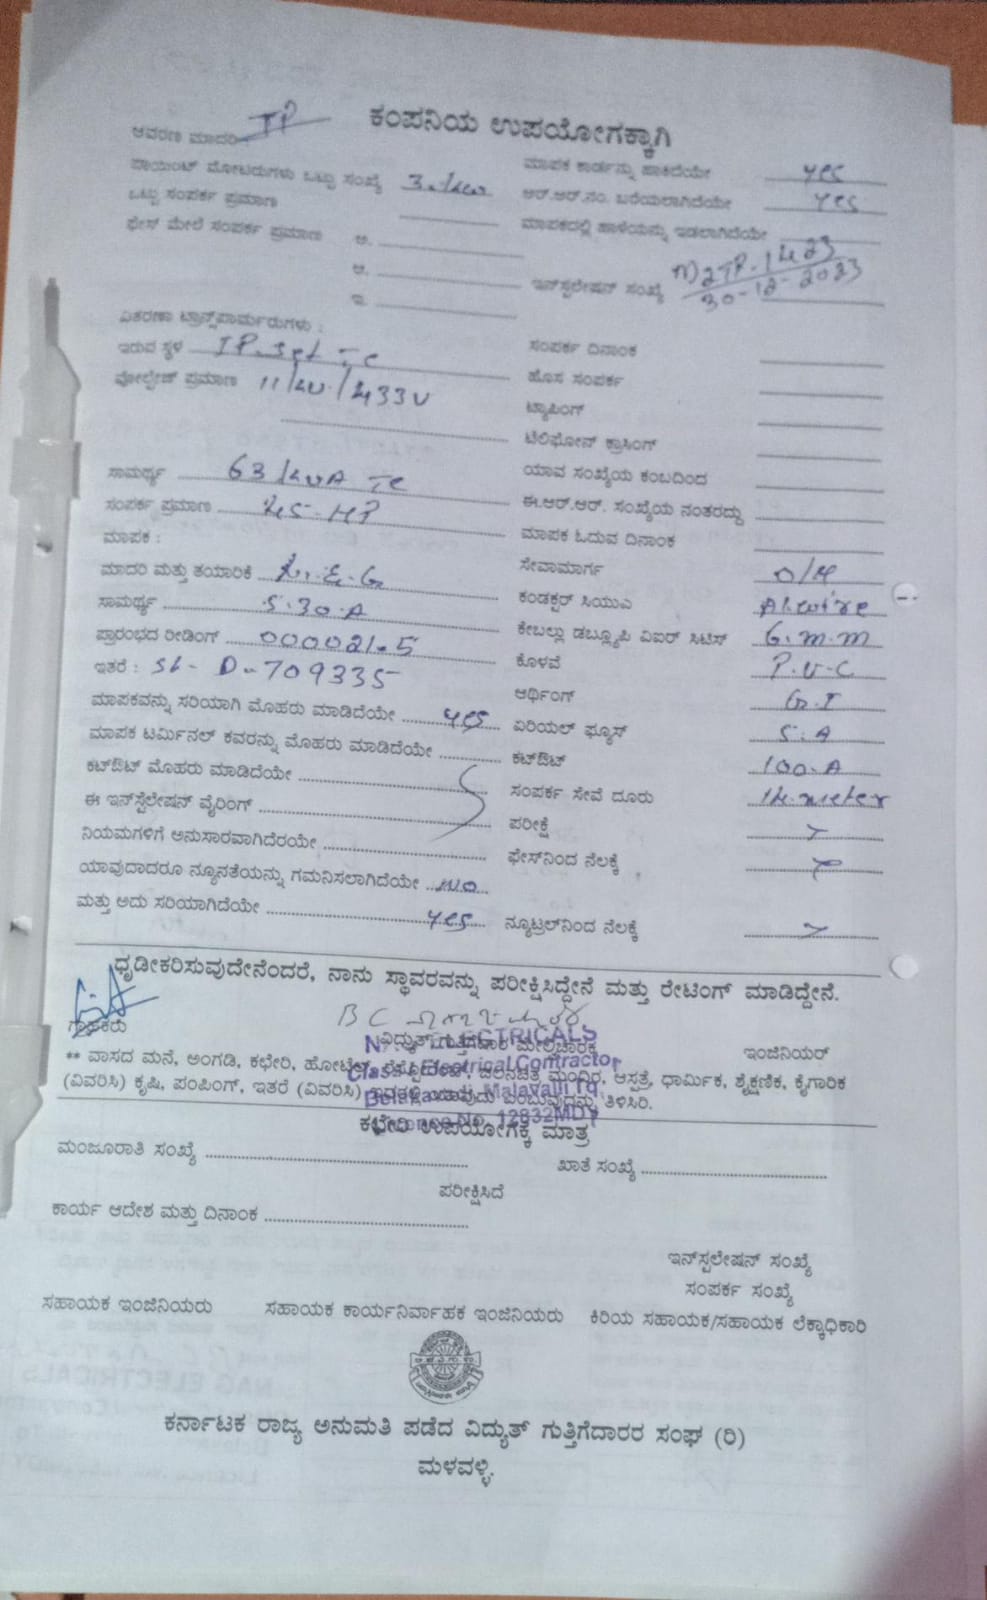 ಕಂಪನಿಯ ಉಪಯೋಗಕ್ಕಾಗಿ
ಆವರಣ ಮಾದರಿ TP
ಪಾಯಿಂಟ್ ಮೋಟರುಗಳು ಒಟ್ಟು ಸಂಖ್ಯೆ ಮಾಪಕ ಕಾರ್ಡನ್ನು ಹಾಕಿದೆಯೇ yes
ಒಟ್ಟು ಸಂಪರ್ಕ ಪ್ರಮಾಣ ಆರ್.ಆರ್.ನಂ. ಬರೆಯಲಾಗಿದೆಯೇ yes
ಫೇಸ್ ಮೇಲೆ ಸಂಪರ್ಕ ಪ್ರಮಾಣ ಅ. ಮಾಪಕದಲ್ಲಿ ಹಾಳೆಯನ್ನು ಇಡಲಾಗಿದೆಯೇ
ಆ. ಇನ್‌ಸ್ಟಲೇಷನ್ ಸಂಖ್ಯೆ M2TP.1423
ಇ. 30-12-2023
ವಿತರಣಾ ಟ್ರಾನ್ಸ್‌ಫಾರ್ಮರುಗಳು :
ಇರುವ ಸ್ಥಳ IP.set Tc ಸಂಪರ್ಕ ದಿನಾಂಕ
ವೋಲ್ಟೇಜ್ ಪ್ರಮಾಣ 11/kv/433V ಹೊಸ ಸಂಪರ್ಕ
ಟ್ಯಾಪಿಂಗ್
ಟೆಲಿಫೋನ್ ಕ್ರಾಸಿಂಗ್
ಸಾಮರ್ಥ್ಯ 63/kvA Tc ಯಾವ ಸಂಖ್ಯೆಯ ಕಂಬದಿಂದ
ಸಂಪರ್ಕ ಪ್ರಮಾಣ 45-HP ಈ.ಆರ್.ಆರ್. ಸಂಖ್ಯೆಯ ನಂತರದ್ದು
ಮಾಪಕ : ಮಾಪಕ ಓದುವ ದಿನಾಂಕ
ಮಾದರಿ ಮತ್ತು ತಯಾರಿಕೆ ಸೇವಾಮಾರ್ಗ O/H
ಸಾಮರ್ಥ್ಯ 5.30.A ಕಂಡಕ್ಟರ್ ಸಿಯುಎ Al.wire
ಪ್ರಾರಂಭದ ರೀಡಿಂಗ್ 000021.5 ಕೇಬಲ್ಲು ಡಬ್ಲ್ಯೂಪಿ ವಿಐಆರ್ ಸಿಟಿಸ್ 6.m.m
ಇತರೆ : SL- D-709335 ಕೊಳವೆ P.V.C
ಆರ್ಥಿಂಗ್ G.I
ಮಾಪಕವನ್ನು ಸರಿಯಾಗಿ ಮೊಹರು ಮಾಡಿದೆಯೇ yes ಏರಿಯಲ್ ಫ್ಯೂಸ್ 5.A
ಮಾಪಕ ಟರ್ಮಿನಲ್ ಕವರನ್ನು ಮೊಹರು ಮಾಡಿದೆಯೇ ಕಟ್‌ಔಟ್ 100.A
ಕಟ್‌ಔಟ್ ಮೊಹರು ಮಾಡಿದೆಯೇ ಸಂಪರ್ಕ ಸೇವೆ ದೂರು 14.meter
ಈ ಇನ್‌ಸ್ಟೆಲೇಷನ್ ವೈರಿಂಗ್ ಪರೀಕ್ಷೆ
ನಿಯಮಗಳಿಗೆ ಅನುಸಾರವಾಗಿದೆರಯೇ ಫೇಸ್‌ನಿಂದ ನೆಲಕ್ಕೆ
ಯಾವುದಾದರೂ ನ್ಯೂನತೆಯನ್ನು ಗಮನಿಸಲಾಗಿದೆಯೇ NO
ಮತ್ತು ಅದು ಸರಿಯಾಗಿದೆಯೇ yes ನ್ಯೂಟ್ರಲ್‌ನಿಂದ ನೆಲಕ್ಕೆ
ಧೃಡೀಕರಿಸುವುದೇನೆಂದರೆ, ನಾನು ಸ್ಥಾವರವನ್ನು ಪರೀಕ್ಷಿಸಿದ್ದೇನೆ ಮತ್ತು ರೇಟಿಂಗ್ ಮಾಡಿದ್ದೇನೆ.
ಗ್ರಾಹಕರು ವಿದ್ಯುತ್ ಗುತ್ತಿಗೆದಾರ ಮೇಲ್ವಿಚಾರಕ ಇಂಜಿನಿಯರ್
ELECTRICALS
Electrical Contractor
Malavalli Tq.
12832MDY
** ವಾಸದ ಮನೆ, ಅಂಗಡಿ, ಕಛೇರಿ, ಹೋಟೆಲ್, ಚಲನಚಿತ್ರ ಮಂದಿರ, ಆಸ್ಪತ್ರೆ, ಧಾರ್ಮಿಕ, ಶೈಕ್ಷಣಿಕ, ಕೈಗಾರಿಕ
(ವಿವರಿಸಿ) ಕೃಷಿ, ಪಂಪಿಂಗ್, ಇತರೆ (ವಿವರಿಸಿ) ಇದರಲ್ಲಿ ಯಾವುದು ಎಂಬುವುದನ್ನು ತಿಳಿಸಿರಿ.
ಕಛೇರಿ ಉಪಯೋಗಕ್ಕೆ ಮಾತ್ರ
ಮಂಜೂರಾತಿ ಸಂಖ್ಯೆ ಖಾತೆ ಸಂಖ್ಯೆ
ಪರೀಕ್ಷಿಸಿದೆ
ಕಾರ್ಯ ಆದೇಶ ಮತ್ತು ದಿನಾಂಕ
ಇನ್‌ಸ್ಟಲೇಷನ್ ಸಂಖ್ಯೆ
ಸಂಪರ್ಕ ಸಂಖ್ಯೆ
ಸಹಾಯಕ ಇಂಜಿನಿಯರು ಸಹಾಯಕ ಕಾರ್ಯನಿರ್ವಾಹಕ ಇಂಜಿನಿಯರು ಕಿರಿಯ ಸಹಾಯಕ/ಸಹಾಯಕ ಲೆಕ್ಕಾಧಿಕಾರಿ
ಕರ್ನಾಟಕ ರಾಜ್ಯ ಅನುಮತಿ ಪಡೆದ ವಿದ್ಯುತ್ ಗುತ್ತಿಗೆದಾರರ ಸಂಘ (ರಿ)
ಮಳವಳ್ಳಿ.